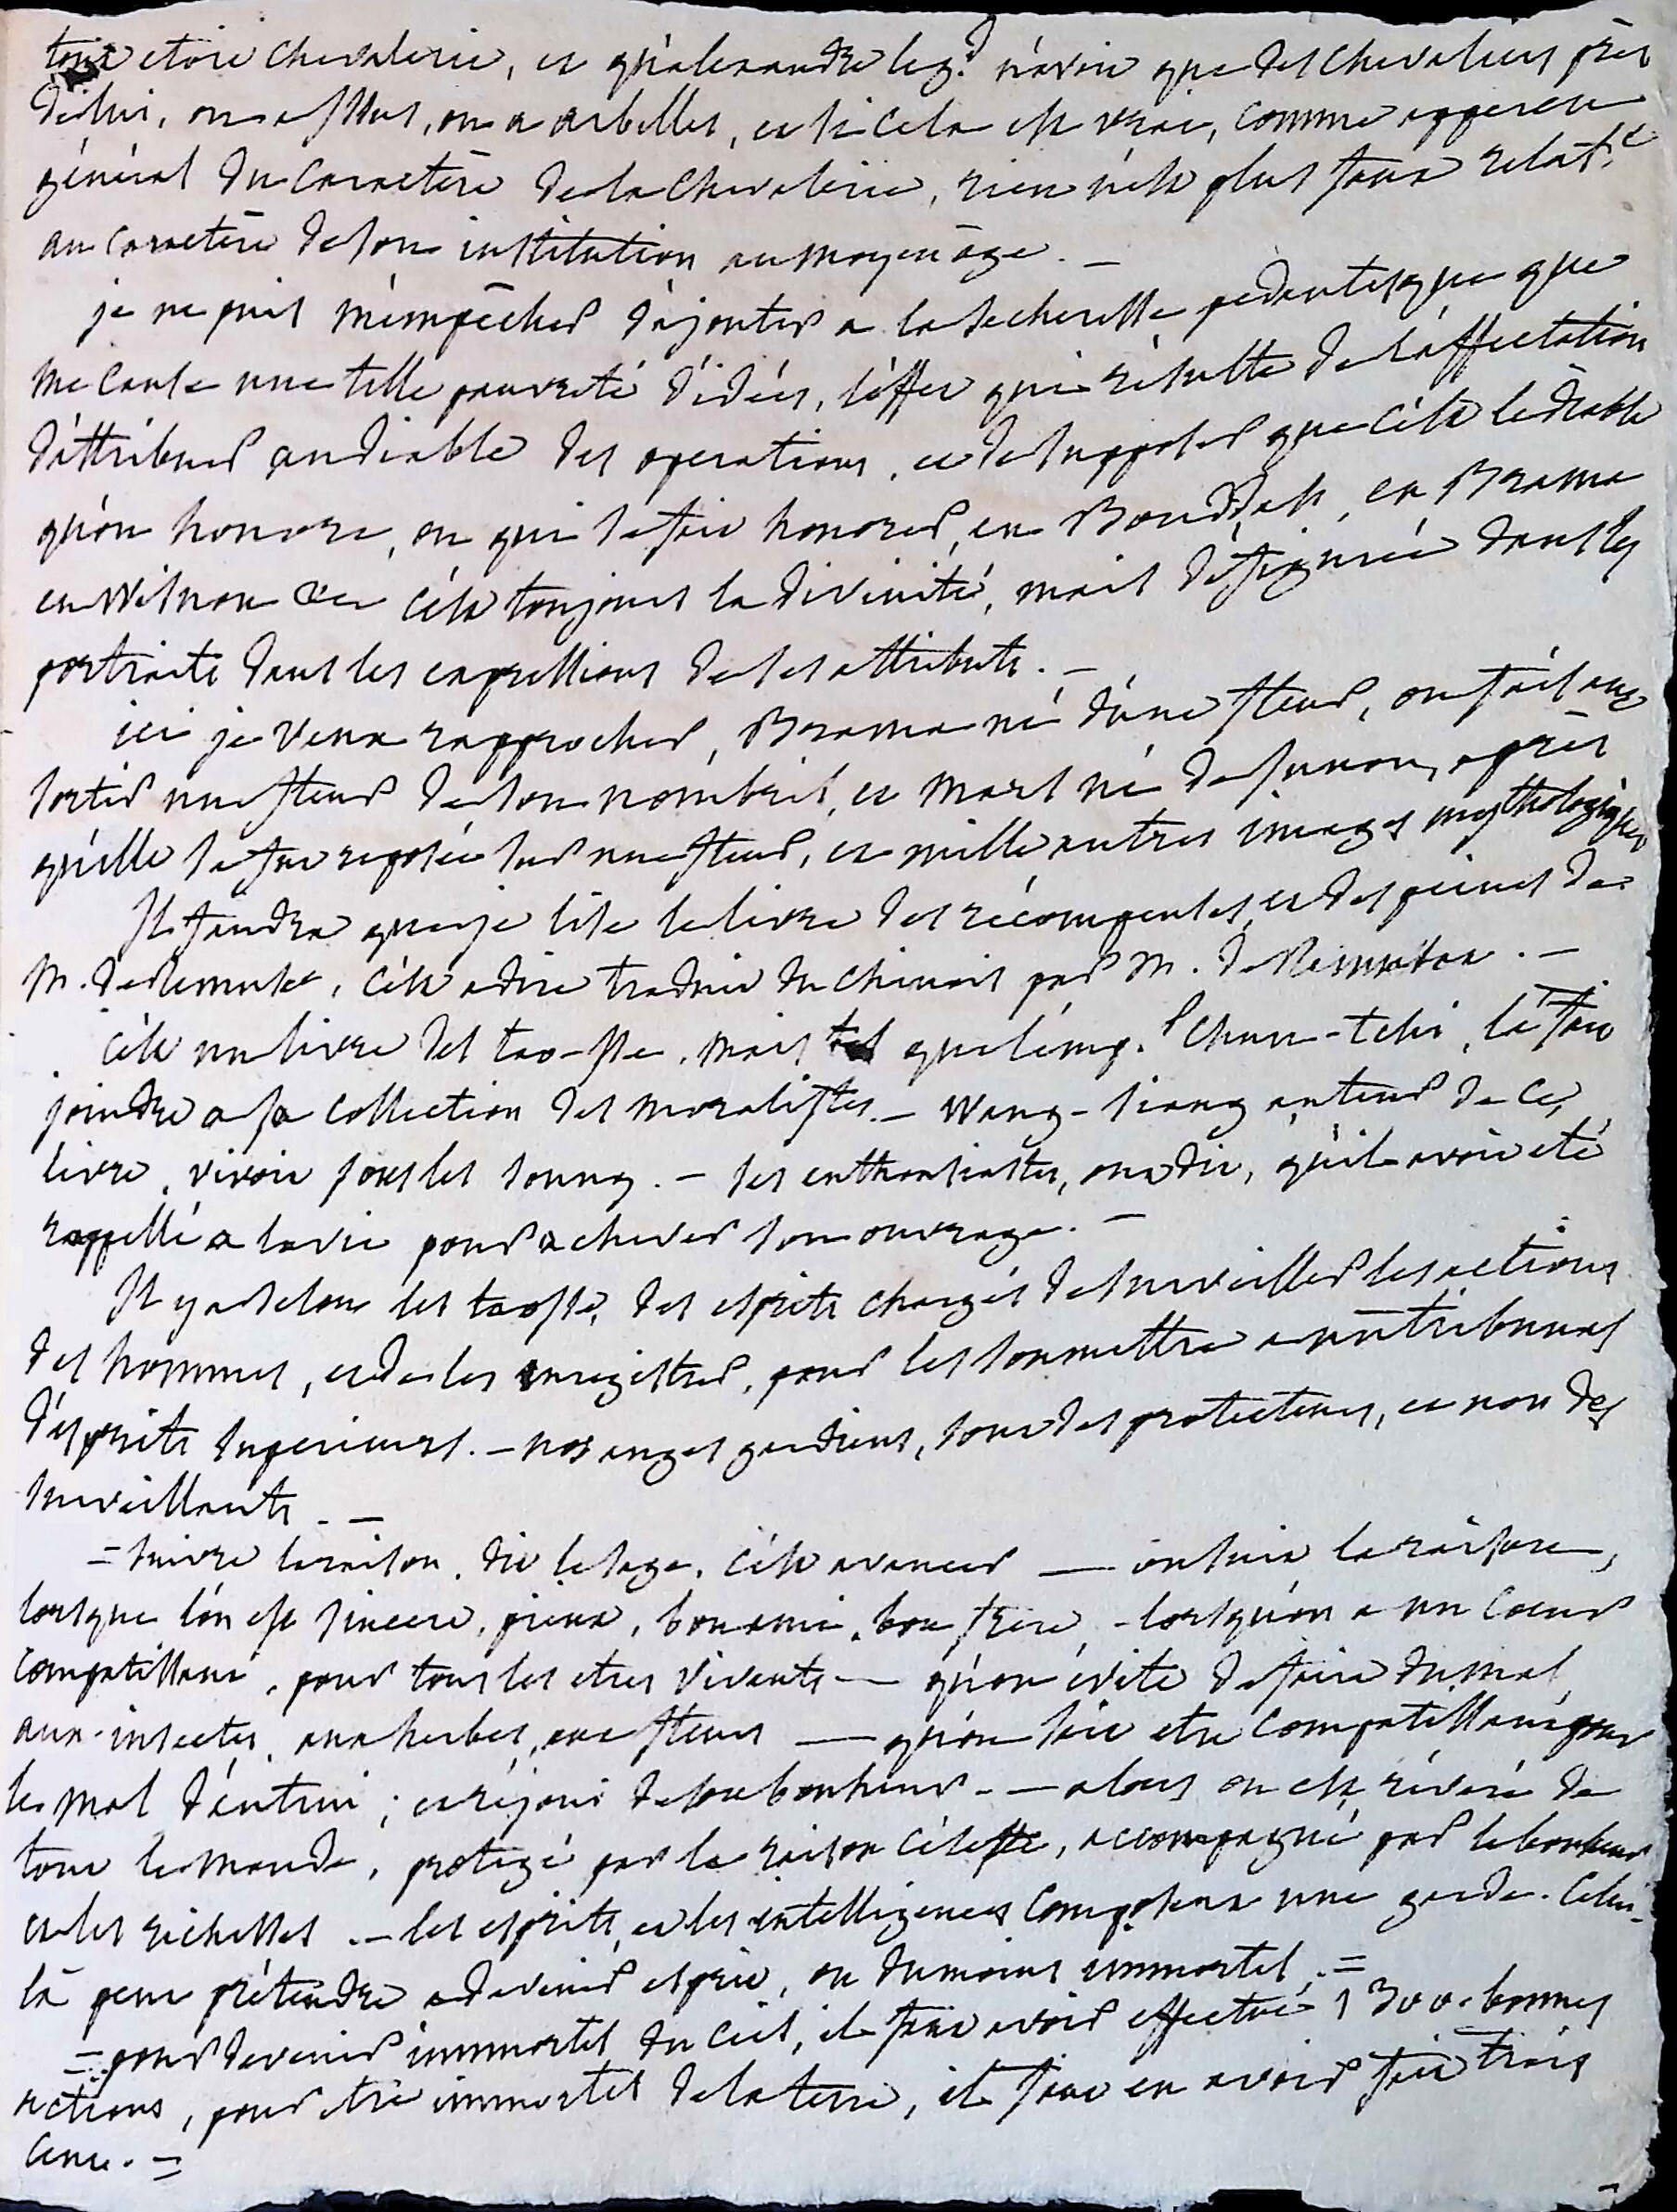 tout etoit chevalerie, et qu'alexandre le g.d n'avoit que des chevaliers près
de lui, ou a issus, ou a arbelles, et si cela est vrai, comme apperceu
général du caractère de la chevalerie, rien n'est plus faux relat.t
au caractère de son institution au moyen âge. —
je ne puis m'empêcher d'ajouter a la secheresse pedantesque que
me cause une telle pauvreté d'idées, l'effet qui résulte de l'affectation
d'attribuer au diable des operations, et de supposer que c'est le diable
qu'on honore, ou qui se fait honorer, en Bouddah, en Brama
en Wisnou &c c'est toujours la divinité, mais défigurée dans les
portraits dans les expressions de ses attributs. —
ici je veux rapprocher, Brama né d'une fleur, ou faisant
sortir une fleur de son nombril, et mars né de junon, après
qu'elle se fut reposée sur une fleur, et mille autres images mythologiques
Il faudra que je lise le livre des récompenses, et des peines de
M. de Remusat, c'est a dire traduit du chinois par M. de Remusat. —
c'est un livre des tao-sse, mais tel que l'emp.r Chun-tchi, l'a fait
joindre a sa collection des moralistes. — Wang-siang auteur de ce
livre, vivoit sous les soung. — ses enthousiastes, ont dit, qu'il avoit eté
rappellé a la vie pour achever son ouvrage. —
Il y a selon les taosse, des esprits chargés de surveiller les actions
des hommes, et de les enregistrer, pour les soumettre a un tribunal
d'esprits superieurs. — nos anges gardiens, sont des protecteurs, et non des
surveillants. —
= suivre la raison, dit le sage, c'est avancer — on suit la raison,
lorsque l'on est sincere, pieux, bon ami, bon frere, - lorsqu'on a un coeur
compatissant, pour tous les etres vivants — qu'on évite de faire du mal
aux insectes, aux herbes, aux fleurs — qu'on sait etre compatissant pour
le mal d'autrui ; et réjoui de son bonheur. — alors on est révéré de
tout le monde, protégé par la raison céleste, accompagné par le bonheur
et les richesses. — les esprits, et les intelligences composent une garde. Celui-
là peut prétendre a devenir esprit, ou du moins immortel. =
= pour devenir immortel du ciel, il faut avoir effectué 1300. bonnes
actions, pour etre immortel de la terre, il faut en avoir fait trois
cent. =